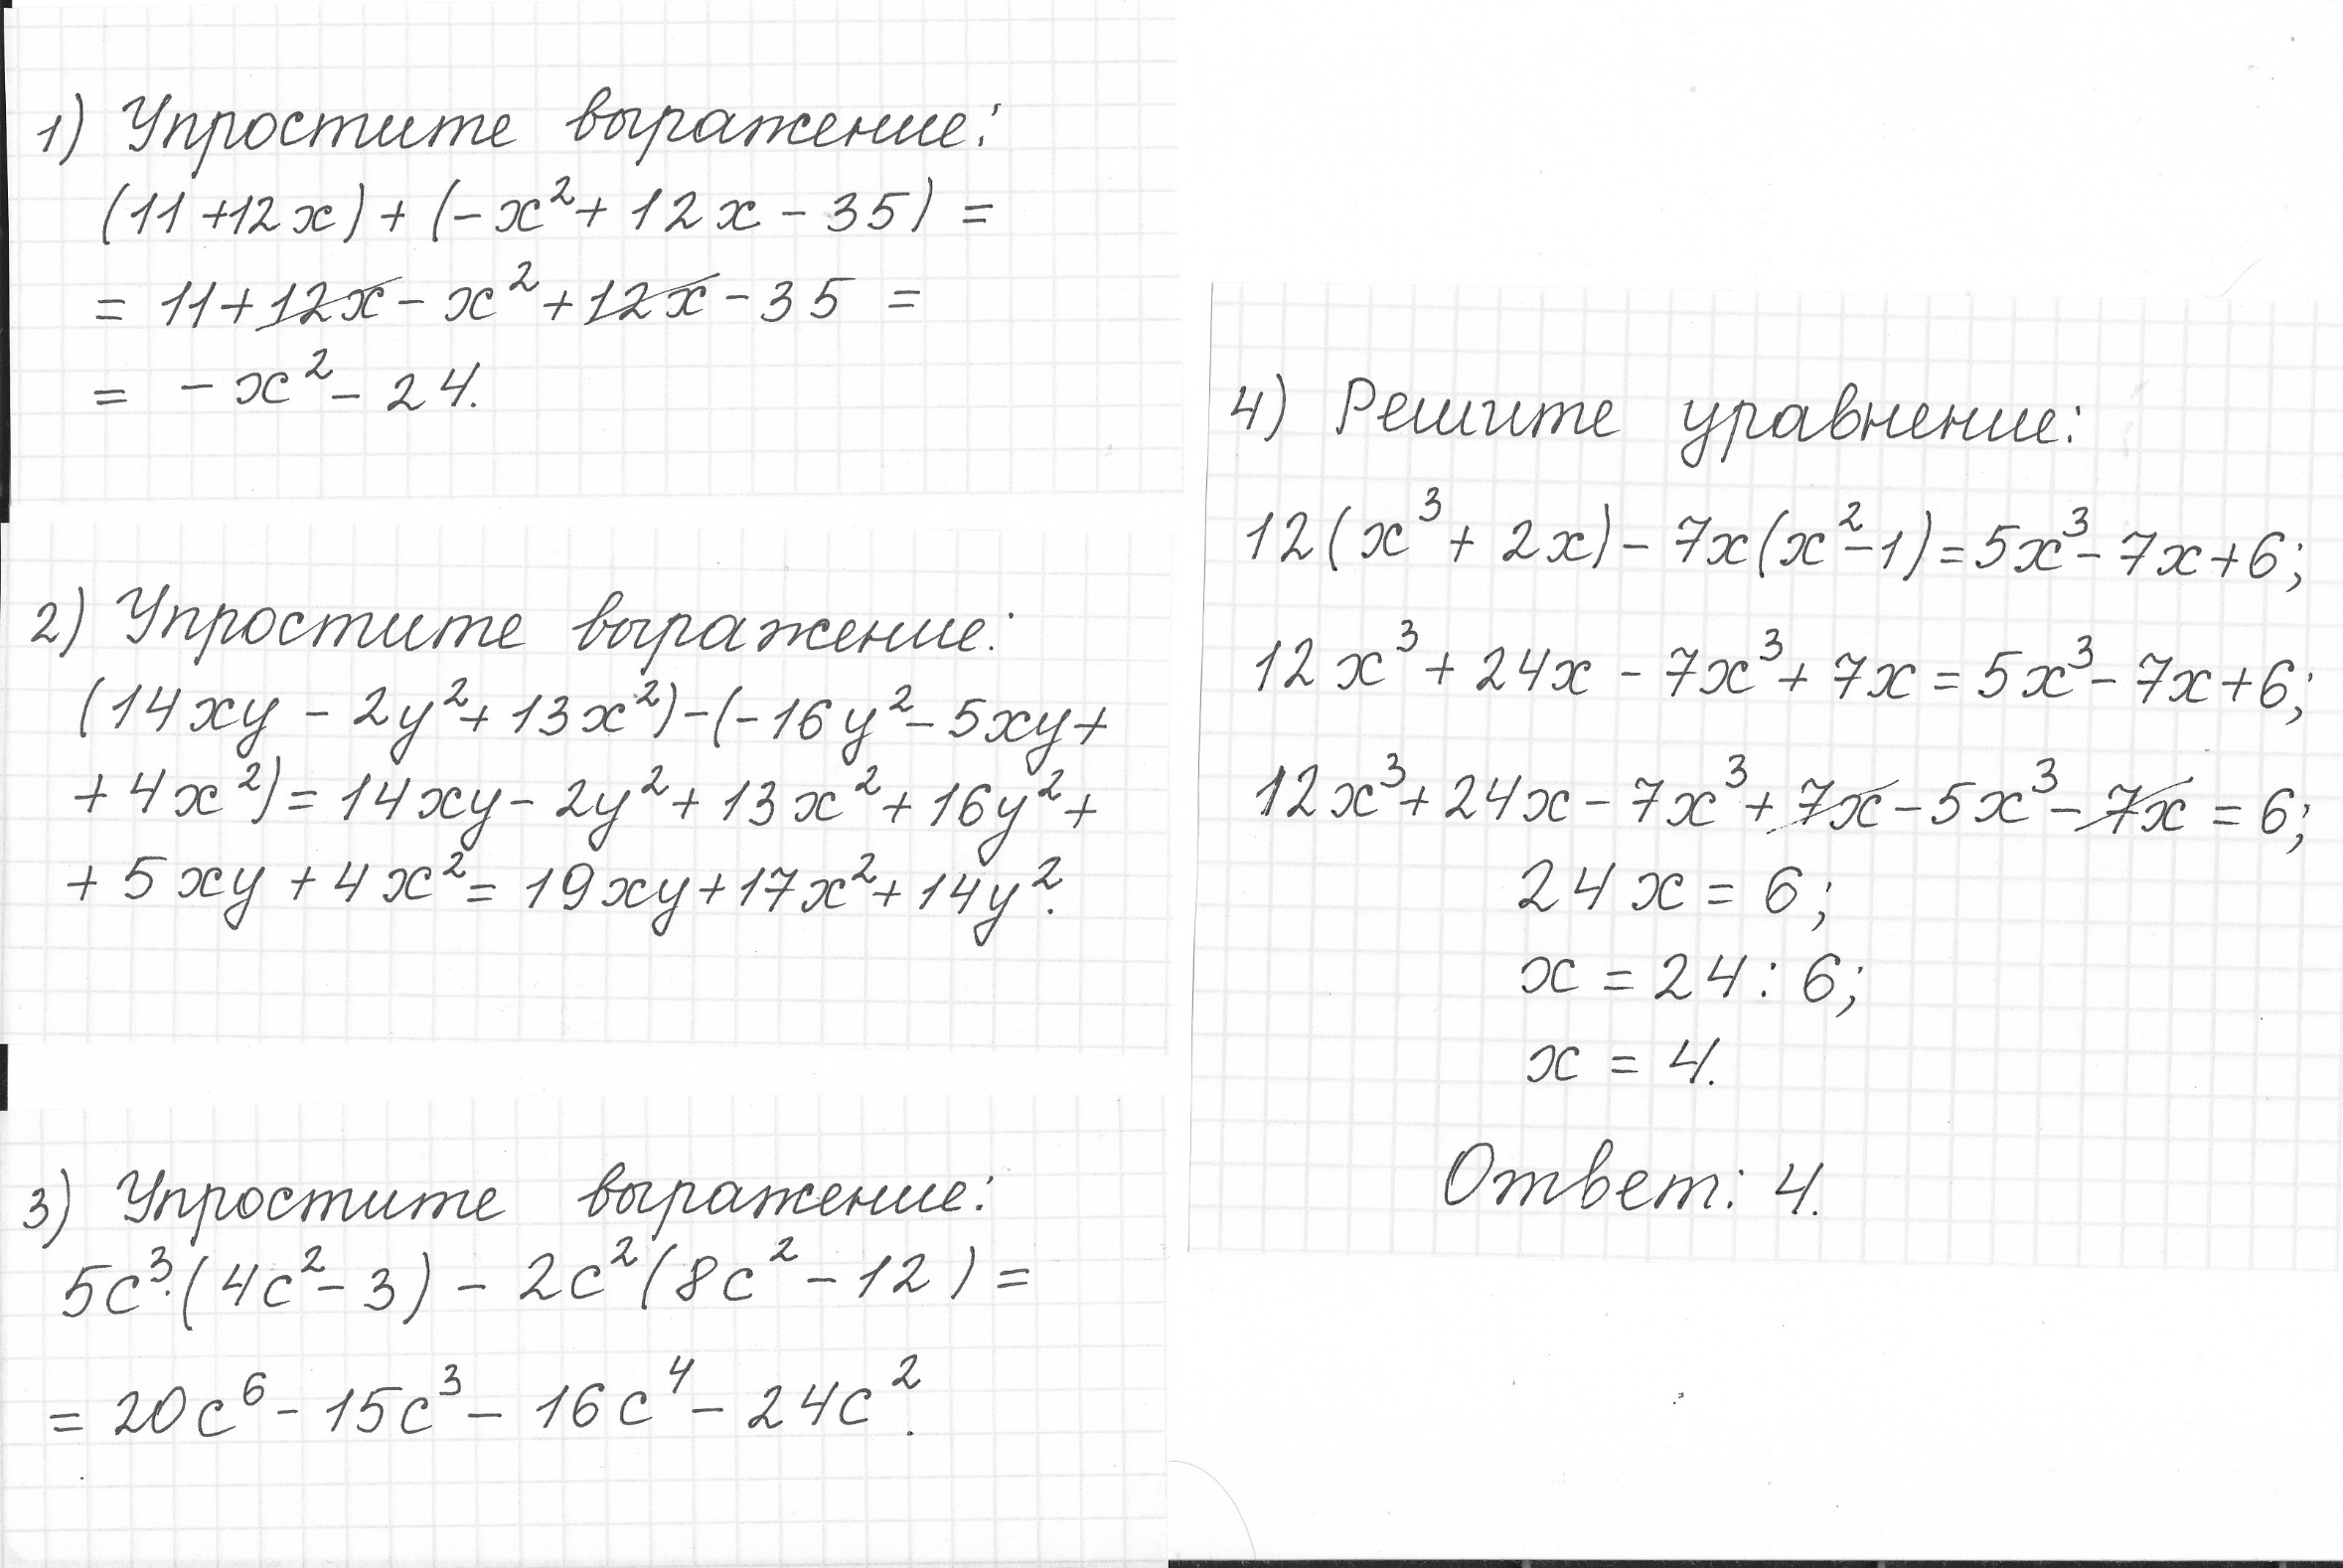 1) Упростите выражение:
(11 + 12x) + (-x² + 12x - 35) =
= 11 + 12x - x² + 12x - 35 =
= - x² - 24.
2) Упростите выражение:
(14xy - 2y² + 13x²) - (-16y² - 5xy +
+ 4x²) = 14xy - 2y² + 13x² + 16y² +
+ 5xy + 4x² = 19xy + 17x² + 14y².
3) Упростите выражение:
5c³·(4c² - 3) - 2c²(8c² - 12) =
= 20c⁶ - 15c³ - 16c⁴ - 24c².
4) Решите уравнение:
12(x³ + 2x) - 7x(x² - 1) = 5x³ - 7x + 6;
12x³ + 24x - 7x³ + 7x = 5x³ - 7x + 6;
12x³ + 24x - 7x³ + 7x - 5x³ - 7x = 6;
24x = 6;
x = 24 : 6;
x = 4.
Ответ: 4.